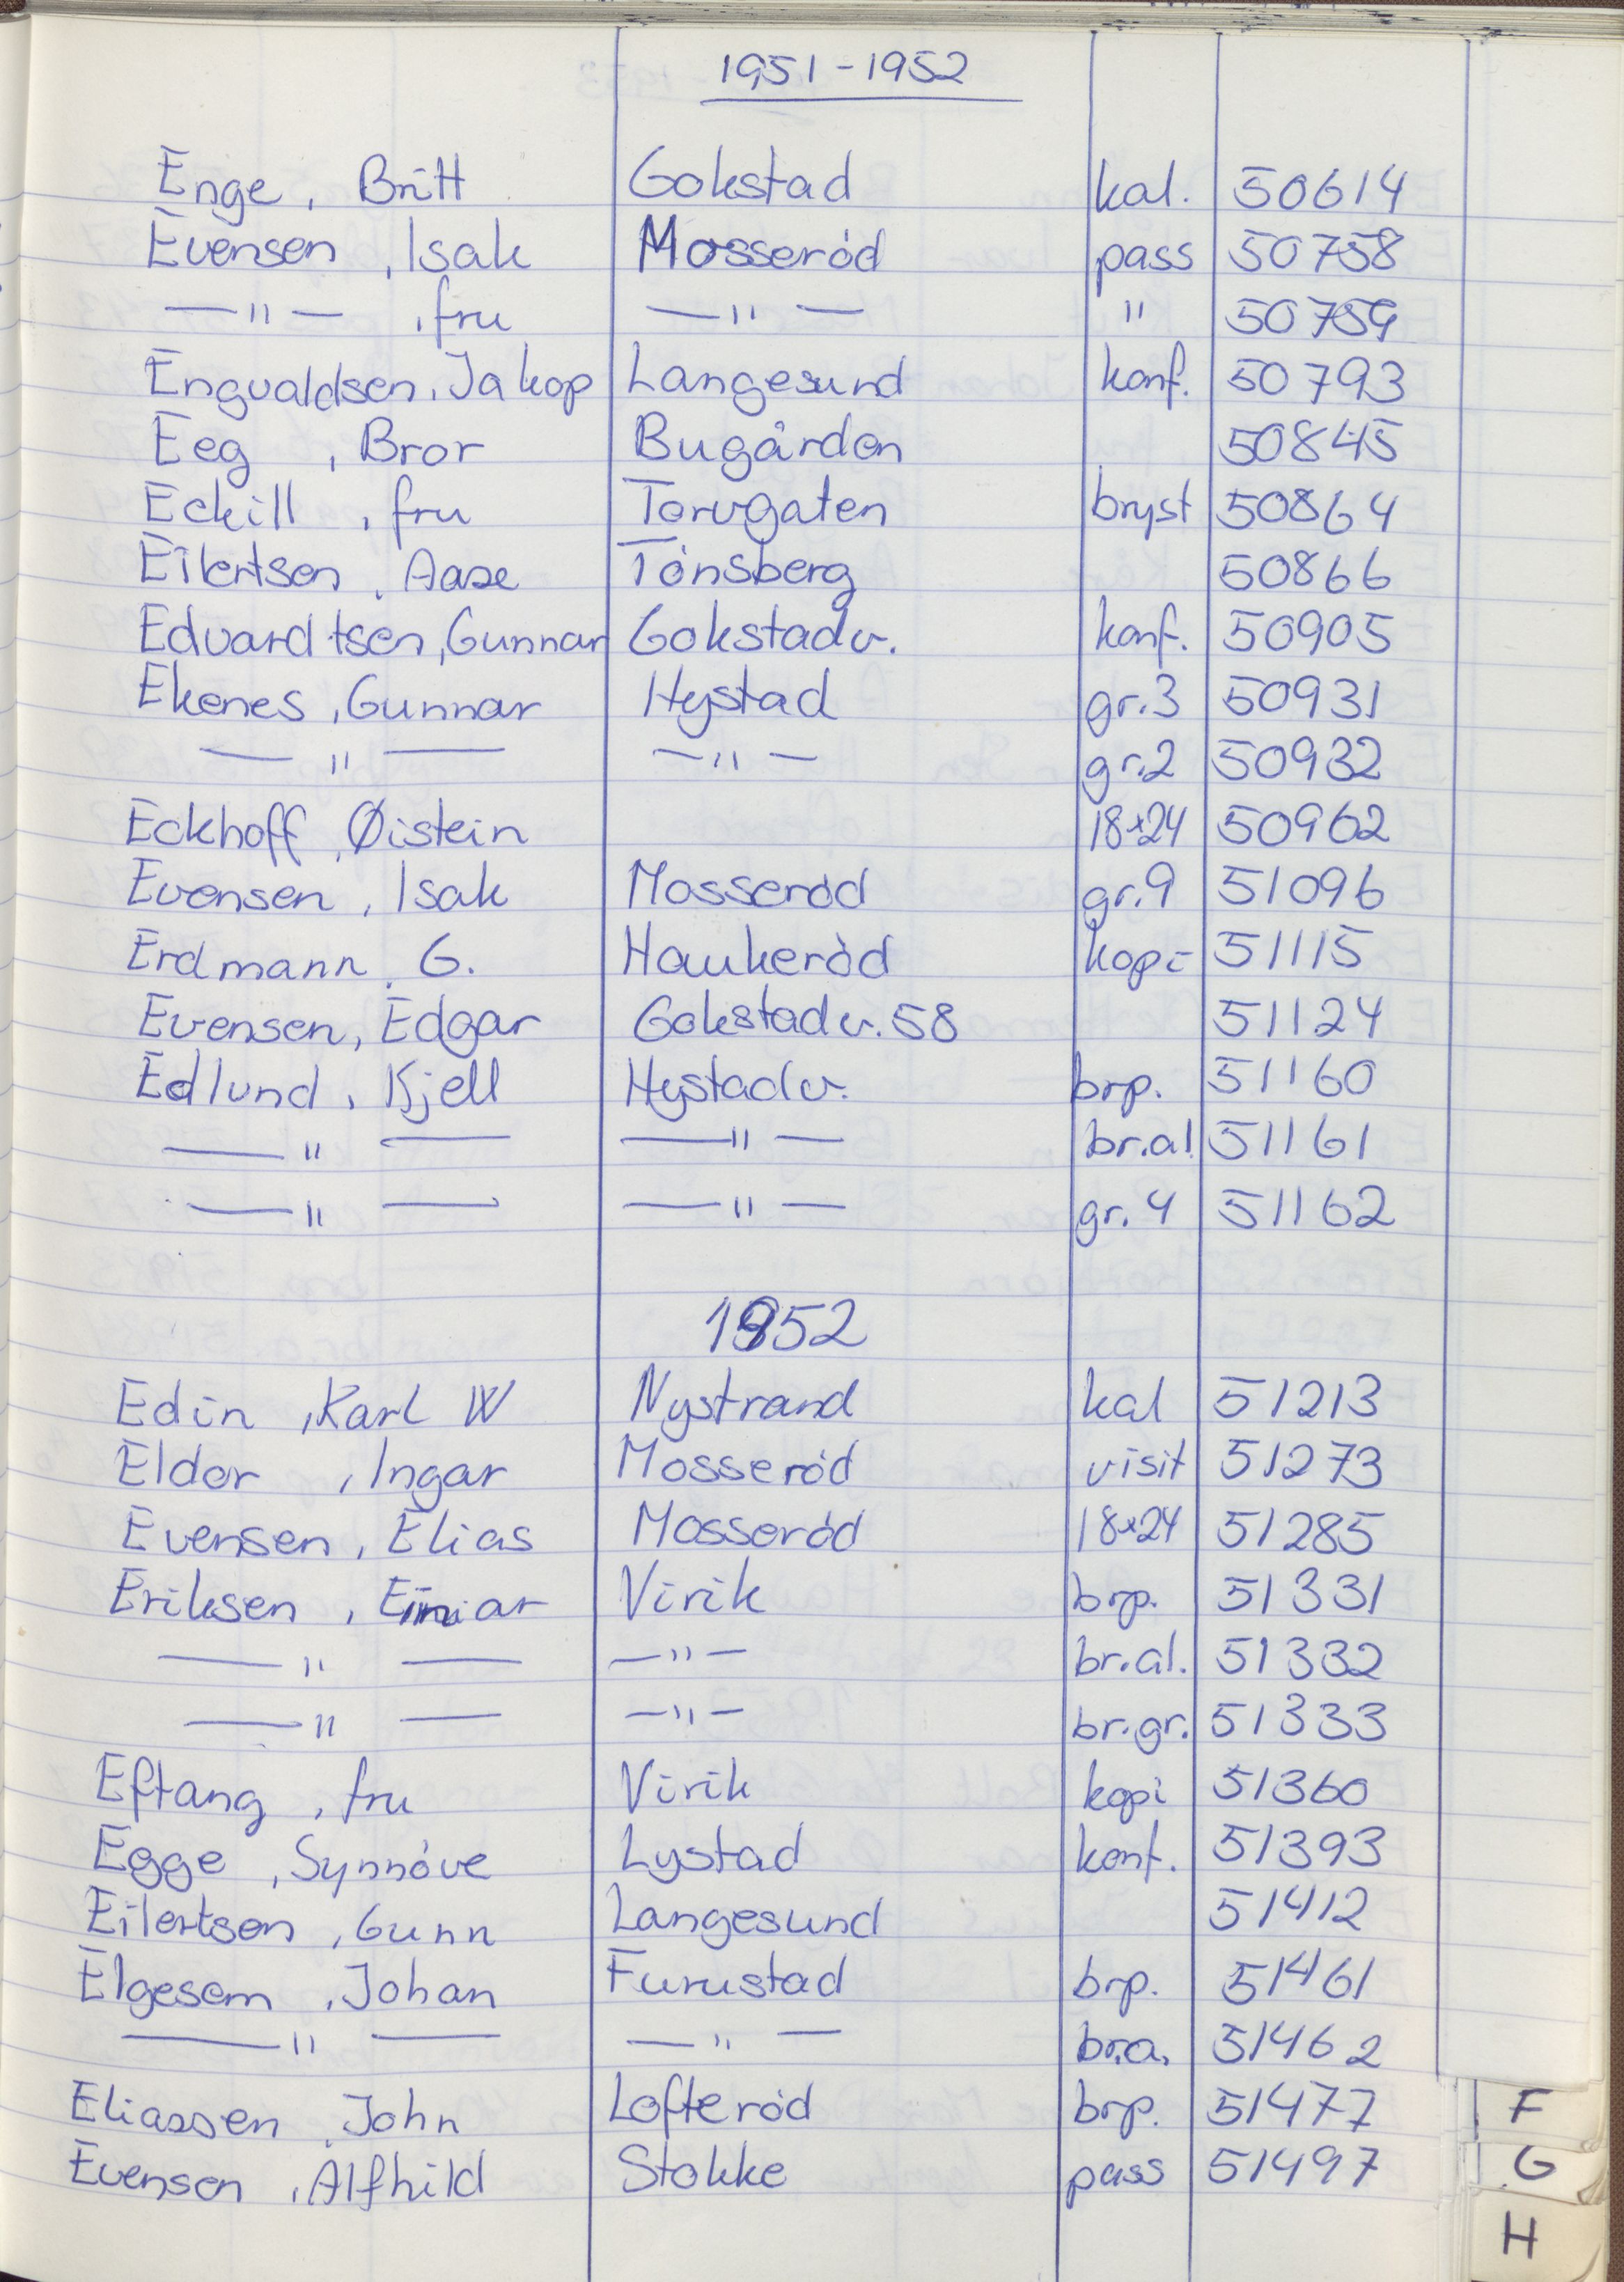 1951-1952
Enge, Britt Gokstad kal. 50614
Evensen, Isak Mosseród pass 50758
—"— , fru —"— " 50759
Engvaldsen, Jakop Langesund konf. 50793
Eeg, Bror Bugården 50845
Eckill, fru Torvgaten bryst 50864
Eilertsen, Aase Tónsberg 50866
Edvardtsen, Gunnar Gokstadv. konf. 50905
Ekenes, Gunnar Hystad gr.3 50931
—"— —"— gr.2 50932
Eckhoff, Øistein 18x24 50962
Evensen, Isak Mosseród gr.9 51096
Erdmann, G. Haukeród kopi 51115
Evensen, Edgar Gokstadv. 58 51124
Edlund, Kjell Hystadv. brp. 51160
—"— —"— br.al 51161
—"— —"— gr. 4 51162
1952
Edin, Karl W Nystrand kal 51213
Eldor, Ingar Mosseród visit 51273
Evensen, Elias Mosseród 18x24 51285
Eriksen, Einar Virik brp. 51331
—"— —"— br.al. 51332
—"— —"— br.gr. 51333
Eftang, fru Virik kopi 51360
Egge, Synnóve Lystad konf. 51393
Eilertsen, Gunn Langesund 51412
Elgesem, Johan Furustad brp. 51461
—"— —"— br.a. 51462
Eliassen, John Lofteród brp. 51477
Evensen, Alfhild Stokke pass 51497
F
G
H